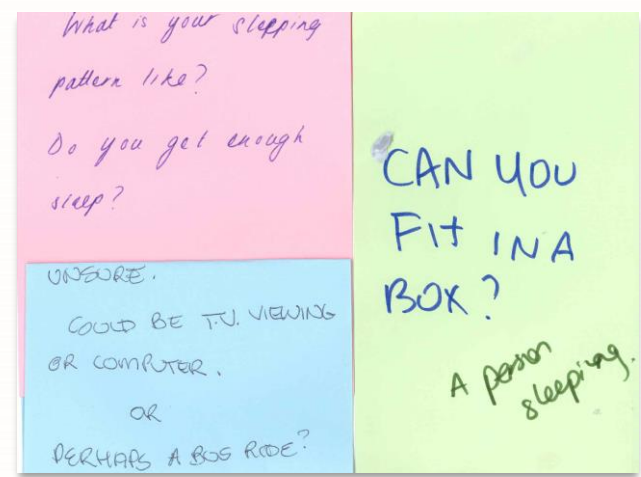 What is your slepping
pattern like?
Do you get enough
sleep?
UNSURE.
COULD BE T.V. VIEWING
OR COMPUTER.
OR
PERHAPS A BUS RIDE?
CAN YOU
Fit IN A
BOX?
A person
sleeping.